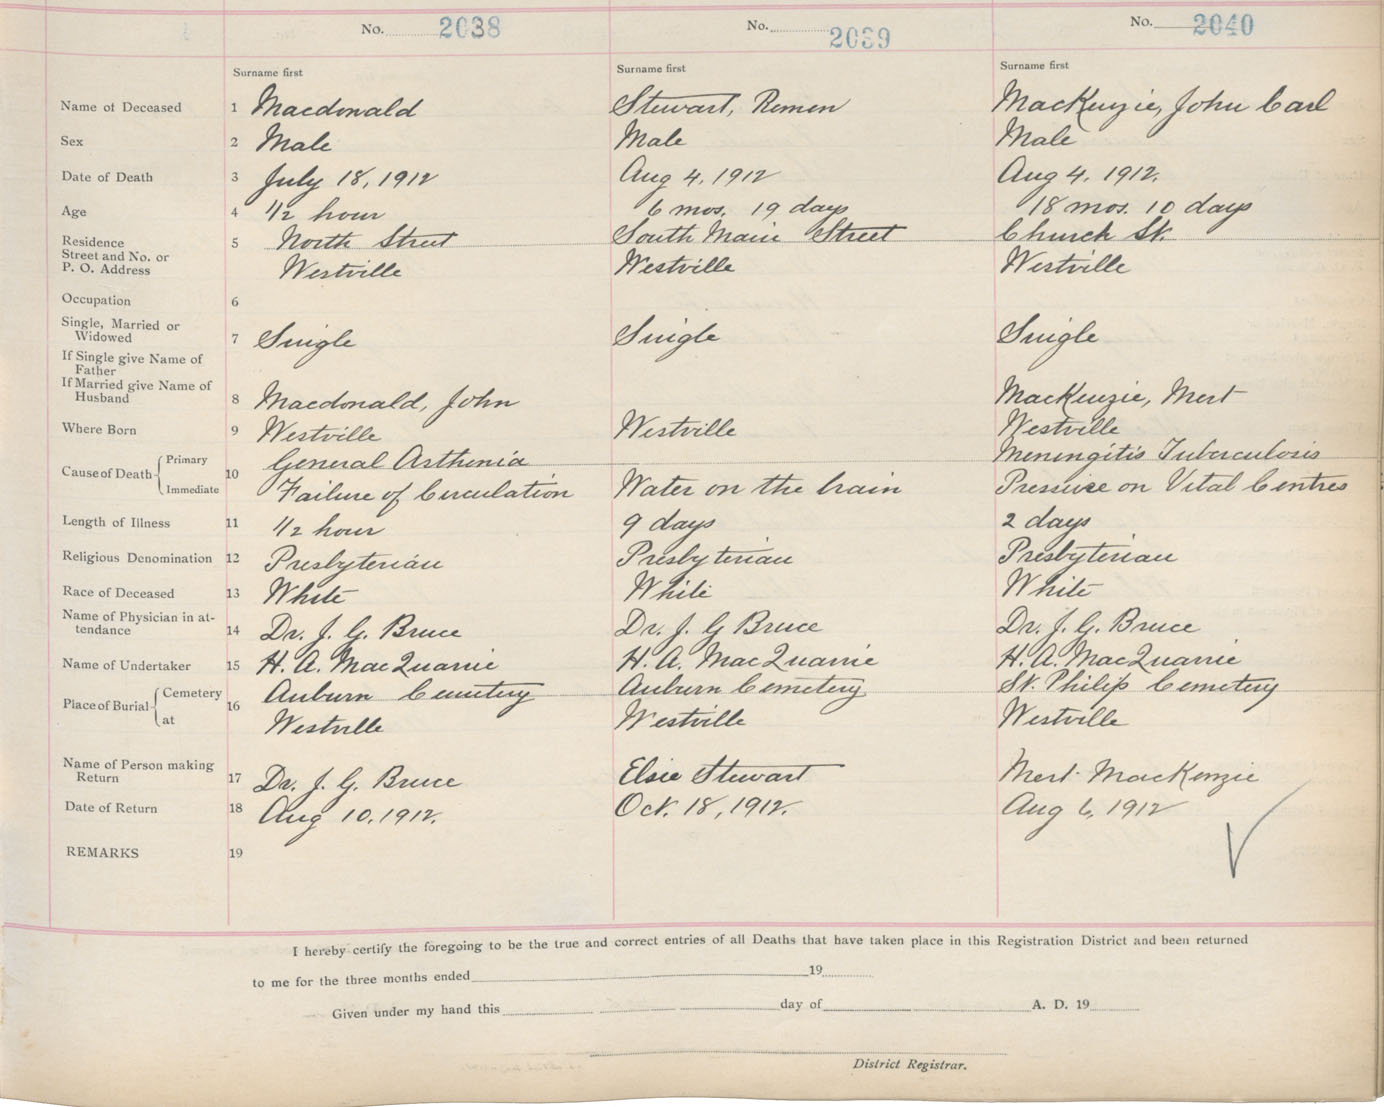 No. 2038
No. 2039
No. 2040
Surname first
Surname first
Surname first
Name of Deceased 1 Macdonald
Stewart, Remen
MacKenzie, John Carl
Sex 2 Male
Male
Male
Date of Death 3 July 18, 1912
Aug 4, 1912
Aug 4, 1912.
Age 4 1/2 hour
6 mos. 19 days
18 mos. 10 days
Residence
Street and No. or
P. O. Address
5 North Street
Westville
South Main Street
Westville
Church St.
Westville
Occupation 6
Single, Married or
Widowed
7 Single
Single
Single
If Single give Name of
Father
If Married give Name of
Husband
8 Macdonald, John
MacKenzie, Mert
Where Born 9 Westville
Westville
Westville
Cause of Death Primary
Immediate
10 General Asthenia
Failure of Circulation
Water on the brain
Meningitis Tuberculosis
Pressure on Vital Centres
Length of Illness 11 1/2 hour
9 days
2 days
Religious Denomination 12 Presbyterian
Presbyterian
Presbyterian
Race of Deceased 13 White
White
White
Name of Physician in at-
tendance
14 Dr. J. G. Bruce
Dr. J. G Bruce
Dr. J. G. Bruce
Name of Undertaker 15 H. A. MacQuarrie
H. A. MacQuarrie
H. A. MacQuarrie
Place of Burial Cemetery
at
16 Auburn Cemetery
Westville
Auburn Cemetery
Westville
St. Philip's Cemetery
Westville
Name of Person making
Return
17 Dr. J. G. Bruce
Elsie Stewart
Mert MacKenzie
Date of Return 18 Aug 10, 1912.
Oct. 18, 1912.
Aug 6, 1912
REMARKS 19
I hereby certify the foregoing to be the true and correct entries of all Deaths that have taken place in this Registration District and been returned
to me for the three months ended 19
Given under my hand this day of A. D. 19
District Registrar.